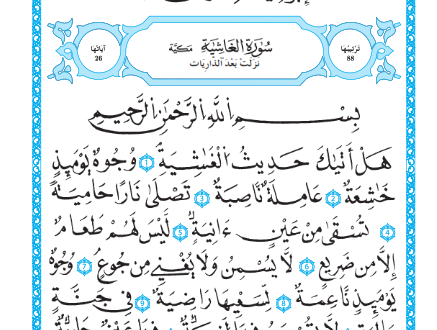 ترتيبها 88 سُورَةُ الغَاشِيَةِ مَكيَّة آياتها 26
نزلت بعد الذاريات
بِسْمِ اللَّهِ الرَّحْمَٰنِ الرَّحِيمِ
هَلْ أَتَىٰكَ حَدِيثُ الْغَٰشِيَةِ ١ وُجُوهٌ يَوْمَئِذٍ
خَٰشِعَةٌ ٢ عَامِلَةٌ نَّاصِبَةٌ ٣ تَصْلَىٰ نَارًا حَامِيَةً
٤ تُسْقَىٰ مِنْ عَيْنٍ ءَانِيَةٍ ٥ لَّيْسَ لَهُمْ طَعَامٌ
إِلَّا مِن ضَرِيعٍ ٦ لَّا يُسْمِنُ وَلَا يُغْنِي مِن جُوعٍ ٧ وُجُوهٌ
يَوْمَئِذٍ نَّاعِمَةٌ ٨ لِّسَعْيِهَا رَاضِيَةٌ ٩ فِي جَنَّةٍ